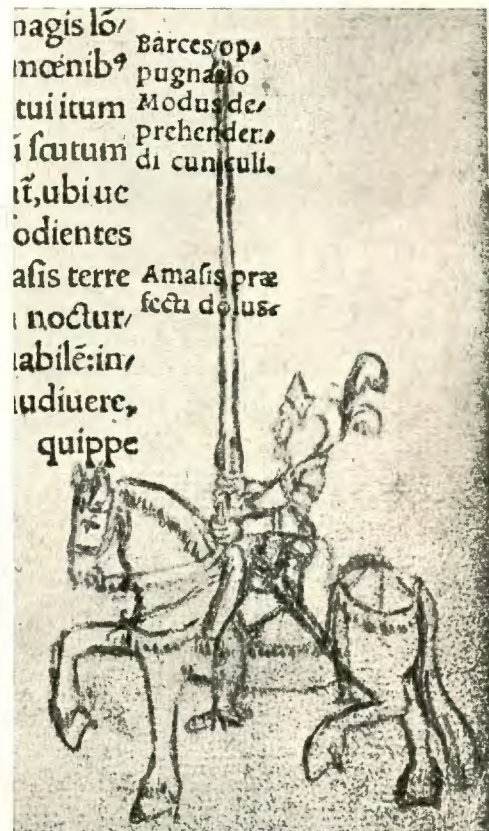 magis lō/
mœnibꝰ
tui itum
ſcutum
at̃,ubi ue
odientes
aſis terre
noctur/
abilē:in/
udiuere,
quippe
Barces op/
pugnatio
Modus de/
prehenden/
di cuniculi.
Amaſis præ
fecti dolus.